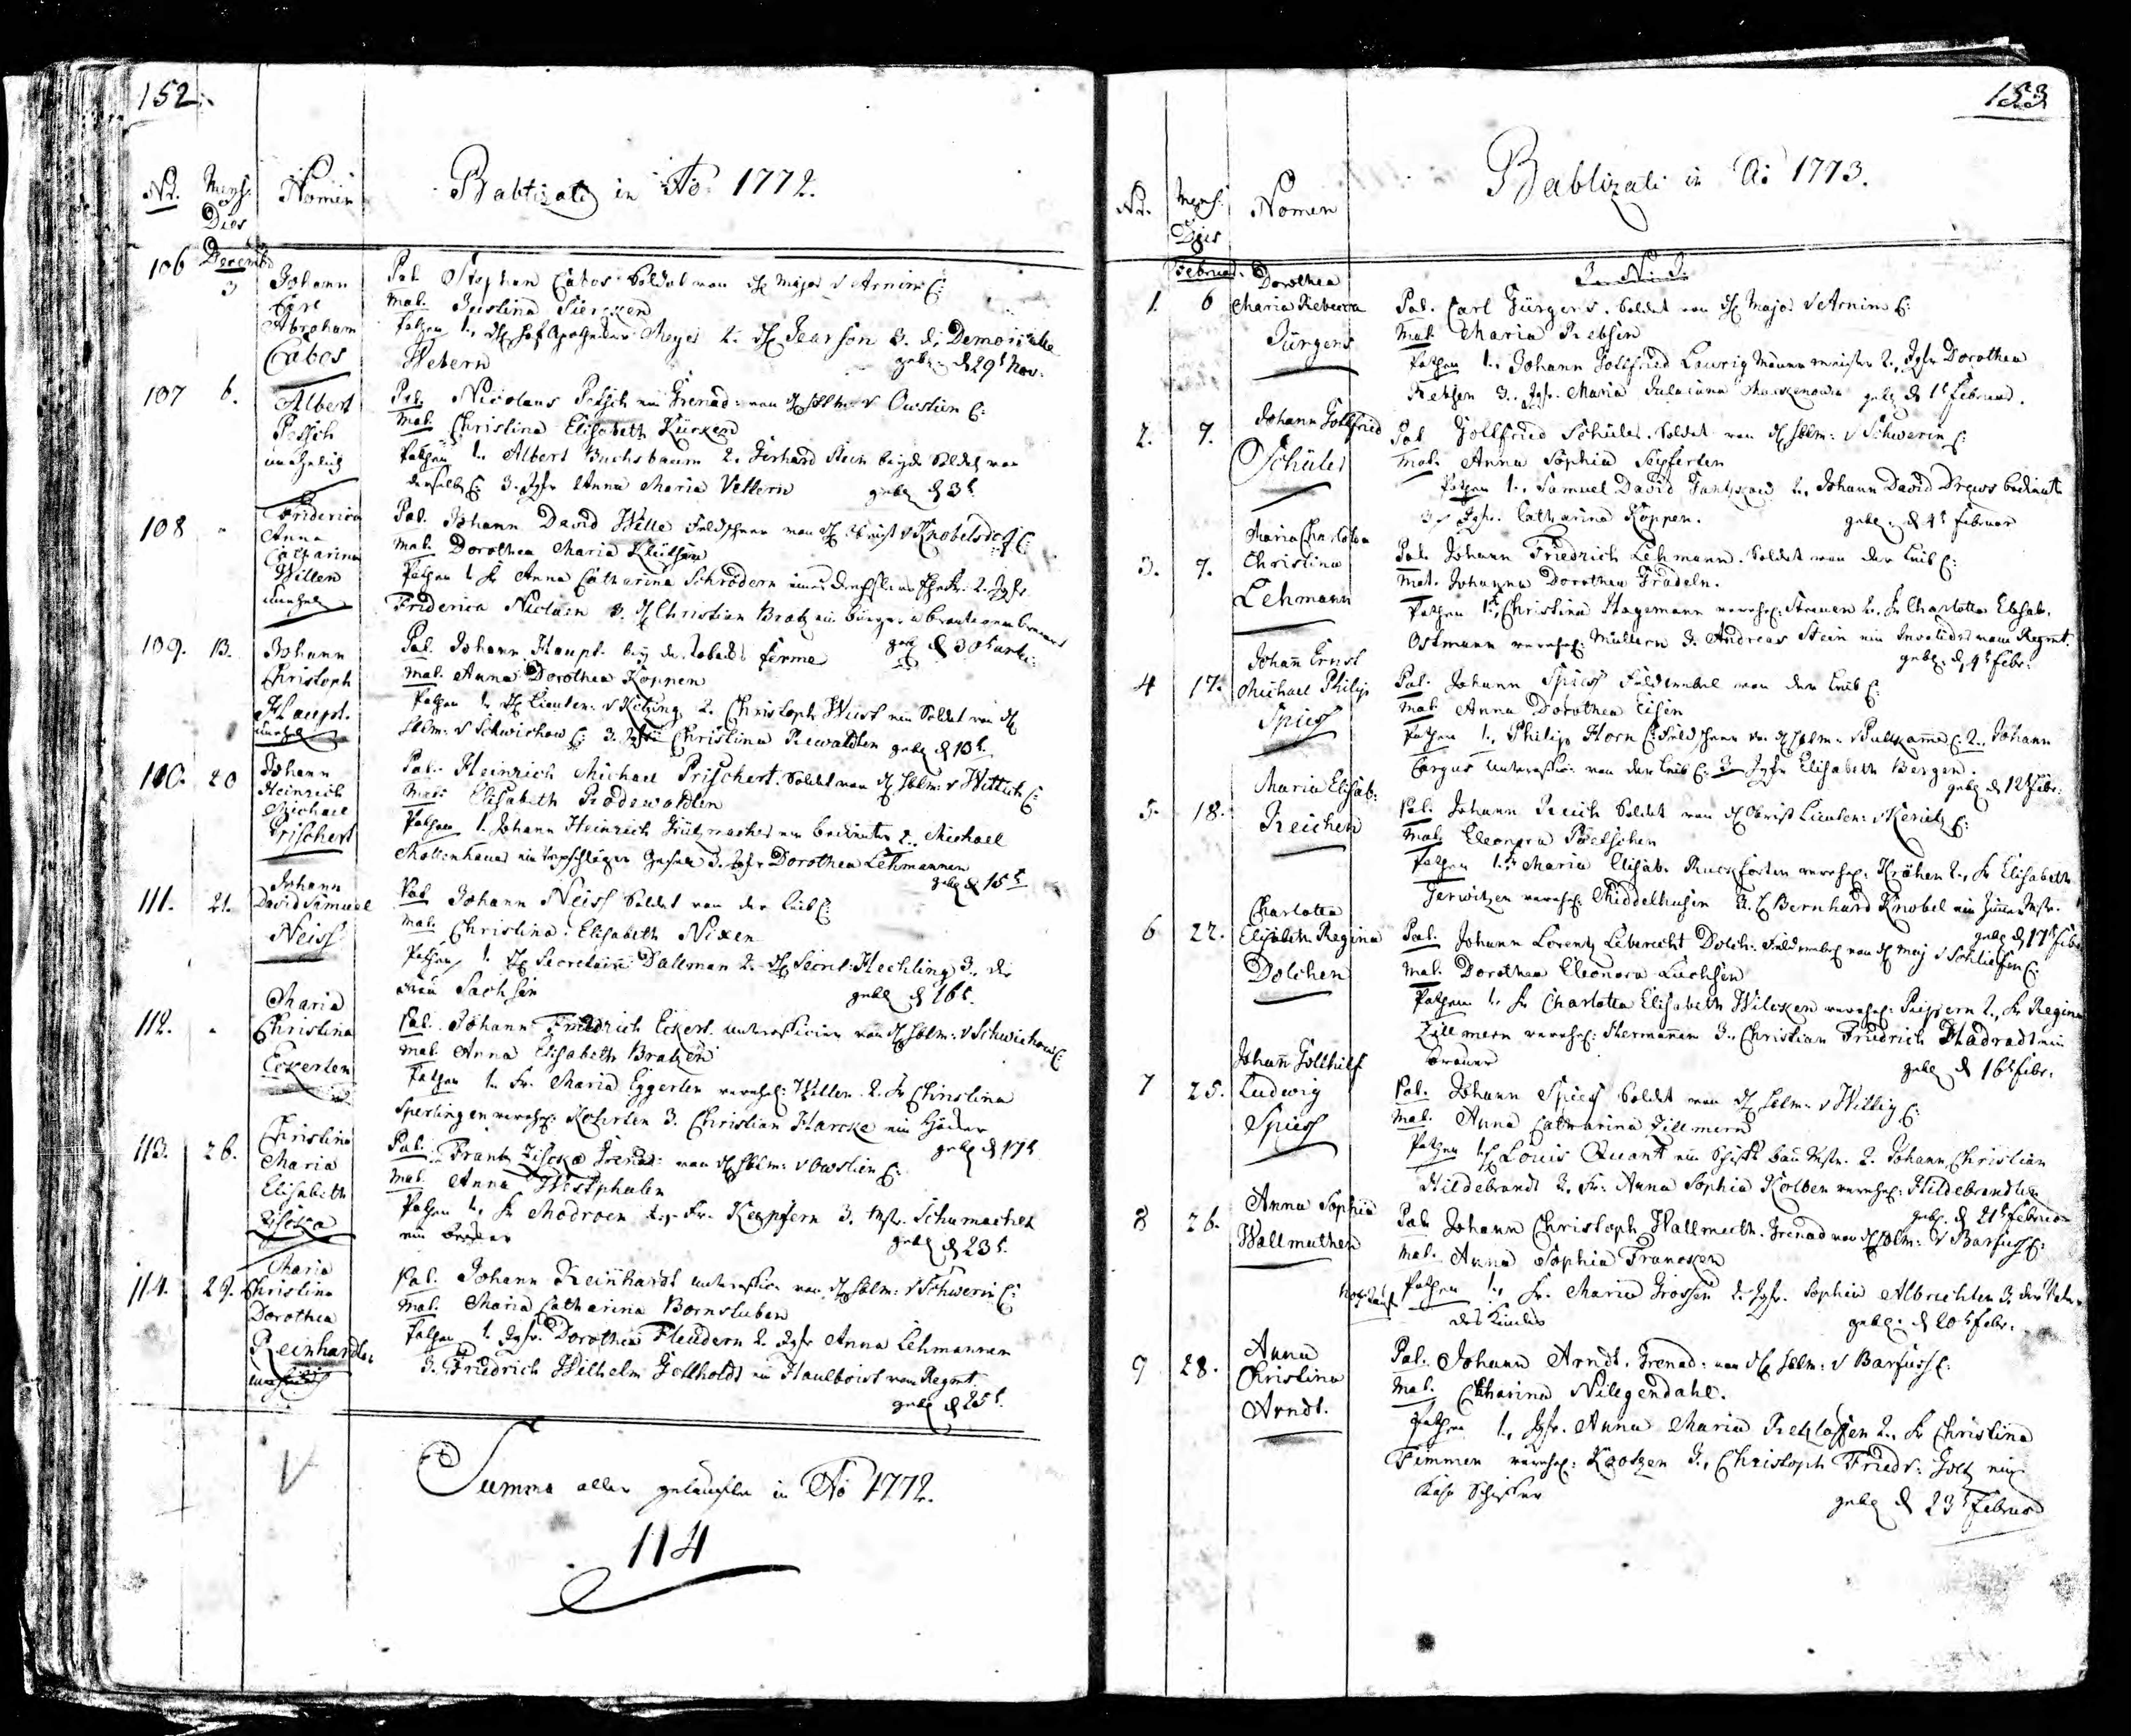 152.
Nr.
Mens.
Dies
Nomen
Babtizati in Ao. 1772.
Decembr
106
3
Johann
Carl
Abraham
Cabos
Pat. Stephan Cabos Soldat von H Major v Arnim C:
Mat. Justina Siercken
Pathen 1., H Hof Apotheker Meyer 2. H Jearson 3. d.
Webern
gebr. d 29t Nov.
107
6.
Albert
Petsch
unehelich
Pat. Nicolaus Petsch ein Grenad: von H Obltn. v Owstien C:
Mat. Christina Elisabeth Kürken
Pathen 1. Albert Buchsbaum 2. Gerhard Stein beyde Soldat von
derselb C: 3. Jgfr Anna Maria Vettern
gebr d 3t.
108
Friderica
Anna
Catharina
Willen
unehel
Pat. Johann David Wille Feldscheer von H Obrist v Knobelsdorf C:
Mat. Dorothea Maria
Pathen 1 Fr Anna Catharina Schrödern 2. Jgfr
Friderica Nicolain 3. H Christian Bratz ein Bürger u Branteweinbrenner
109.
13.
Johann
Christoph
Haupt.
unehel
Pat. Johann Haupt. bey der Tobacks ferme
Mat. Anna Dorothea Koppnen
Pathen 1. H Lieuten: v Kitzing 2. Christoph Wüst ein Soldat von H
Obltn: v Schwichow C: 3. Jgfr Christina Rewaldten gebr d 10t.
110.
20
Johann
Heinrich
Michael
Prischert
Pat. Heinrich Michael Prischert. Soldat von H Obltn: v Wittich C:
Mat. Elisabeth Rodewaldten
Pathen 1. Johann Heinrich Grützmacher ein Bedienter 2., Michael
3. Jgfr Dorothea Lehmannen
gebr d 15t
111.
21.
Johann
David Simuel
Neiss
Pat Johann Neiss Soldat von der Leib C:
Mat. Christina Elisabeth Nixen
Pathen, 1. H Secretair Dallman 2. H Secret: Hechling 3. die
Frau Sachsin
gebr d 16t.
112.
Maria
Christina
Eckerten
Pat. Johann Friedrich Eckert. Unterofficier von H Obltn. v Schwichow C:
Mat. Anna Elisabeth Bratzen
Pathen 1. Fr. Maria Eggerten verehel: Willen 2. Fr Christina
Sperlingen verehel: Kohrten 3. Christian Harcke ein
gebr d 17t
113.
26.
Christina
Maria
Elisabeth
Zischa
Pat. Frantz Zischa Grenad: von H Obltn: v Owstien C:
Mat. Anna Westphalen
Pathen 1. Fr Modroen 2. Fr. Kempfern 3. Mstr. Schumacher
ein Brauer
gebr d 23t.
114.
29.
Maria
Christina
Dorothea
Reinhardten
Pat. Johann Reinhardt Unterofficier von H Obltn: v Schwerin C:
Mat. Maria Catharina Bornstuben
Pathen 1. Jgfr. Dorothea Fleudern 2. Jgfr Anna Lehmannen
3. Friedrich Wilhelm Gottholdt ein Hautboist vom Regmt.
gebr d 25t.
Summa aller getauften in Ao 1772.
114
153
Nr.
Mens.
Dies
Nomen
Babtizati in Ao: 1773.
J. N. J.
Februar.
1.
6
Dorothea
Maria Rebecca
Jürgens
Pat. Carl Jürgens. Soldat von H Major v Arnim C:
Mat. Maria Retzsen
Pathen 1., Johann Gottfried Lawrig Mauermeister 2., Jgfr Dorothea
Retzsen 3., Jgfr. Maria gebr d 1t Februar.
2.
7.
Johann Gottfried
Schüler
Pat Gottfried Schüler. Soldat von H Obltn: v Schwerin C:
Mat. Anna Sophia Seyferten
Pathen 1., Samuel David 2., Johann David Drews Bedienter
3. Jgfr. Catharina Koppen.
gebr. d 4t Februar
3.
7.
Maria Charlotta
Christina
Lehmann
Pat. Johann Friedrich Lehmann. Soldat von der Leib C:
Mat. Johanna Dorothea Gradeln.
Pathen 1. Fr Christina Hagemann verehel: 2. Fr Charlotta Elisab.
Ostmann verehel: Müllern 3. Andreas Stein ein Invalide vom Regmt.
gebr. d 4t Febr.
4
17.
Johann Ernst
Michael Philip
Spiess
Pat. Johann Spiess Feldwebel von der Leib C:
Mat. Anna Dorothea Eisen
Pathen 1., Philip Horn Feldscheer von H Obltn. v Puttkamer C: 2., Johann
Cargus Unterofficier von der Leib C: 3 Jgfr Elisabeth Bergen.
gebr d 12t Febr.
5.
18.
Maria Elisab:
Reichen
Pat. Johann Reich Soldat von H Obrist Lieuten: v Keric C:
Mat. Eleonora Poetschen
Pathen 1. Fr Maria Elisab. Ruckforten verehel. Krähen 2., Fr Elisabeth
Gerwitzen verehel: Middelhusen 3. H Bernhard Knobel ein Zimmer Mstr.
gebr d 17t Febr
6
22.
Charlotta
Elisabeth Regina
Dolchen
Pat. Johann Lorentz Leberecht Dolch. Feldwebel von H Maj v Schliefen C:
Mat. Dorothea Eleonora Luchsen
Pathen 1. Fr Charlotta Elisabeth Wilcken verehel: Peipern 2., Fr Regina
Zillmern verehel: Hermannen 3. Christian Friedrich Hadradt ein
Brauer
gebr d 16t Febr.
7
25.
Johann Gotthilf
Ludwig
Spiess
Pat. Johann Spiess Soldat von H Obltn. v Wittig C:
Mat. Anna Catharina Zillmern
Pathen 1. H Louis Quant ein Schiff bau Mstr. 2. Johann Christian
Hildebrandt 3. Fr. Anna Sophia Kolben verehel: Hildebrandten
gebr. d 21t Februar
8
26.
Anna Sophia
Wallmuthen
Pat Johann Christoph Wallmuth. Grenad von H Obltn: v Barfuss C:
Mat. Anna Sophia Francken
Noth Tauf
Pathen 1., Fr. Maria Grossen 2. Jgfr. Sophia Albrechten 3. der Vater
des Kindes
gebr. d 20t Febr.
9
28.
Anna
Christina
Arndt.
Pat. Johann Arndt. Grenad: von H Obltn: v Barfuss C:
Mat. Catharina Nilegendahl.
Pathen 1., Jgfr. Anna Maria Retzlaffen 2., Fr Christina
Timmen verehel: Krotzen 3., Christoph Friedr: Goltz ein
Schiffer
gebr d 23t Februar